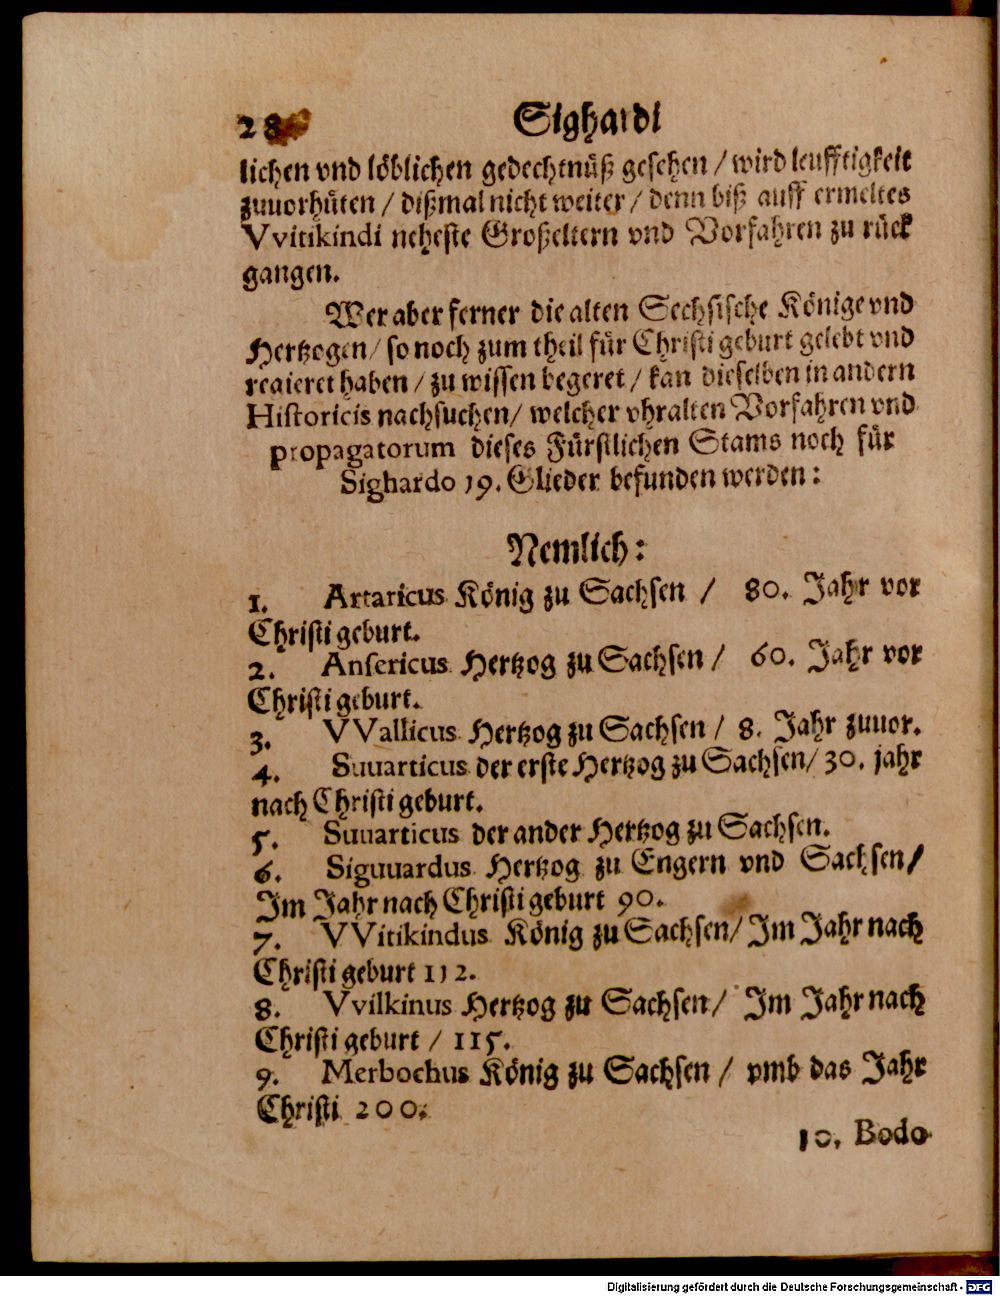 28 Sighardi
lichen vnd löblichen gedechtnüß gesehen / wird leufftigkeit
zuuorhüten / dißmal nicht weiter / denn biß auff ermeltes
Vvitikindi neheste Großeltern vnd Vorfahren zu rück
gangen.
Wer aber ferner die alten Sechsische Könige vnd
Hertzogen / so noch zum theil für Christi geburt gelebt vnd
regieret haben / zu wissen begeret / kan dieselben in andern
Historicis nachsuchen / welcher vhralten Vorfahren vnd
propagatorum dieses Fürstlichen Stams noch für
Sighardo 19. Glieder befunden werden:
Nemlich:
1. Artaricus König zu Sachsen / 80. Jahr vor
Christi geburt.
2. Ansericus Hertzog zu Sachsen / 60. Jahr vor
Christi geburt.
3. VVallicus Hertzog zu Sachsen / 8. Jahr zuuor.
4. Suuarticus der erste Hertzog zu Sachsen / 30. jahr
nach Christi geburt.
5. Suuarticus der ander Hertzog zu Sachsen.
6. Siguuardus Hertzog zu Engern vnd Sachsen /
Im Jahr nach Christi geburt 90.
7. VVitikindus König zu Sachsen / Im Jahr nach
Christi geburt 112.
8. Vvilkinus Hertzog zu Sachsen / Im Jahr nach
Christi geburt / 115.
9. Merbochus König zu Sachsen / vmb das Jahr
Christi 200.
10. Bodo
Digitalisierung gefördert durch die Deutsche Forschungsgemeinschaft - DFG